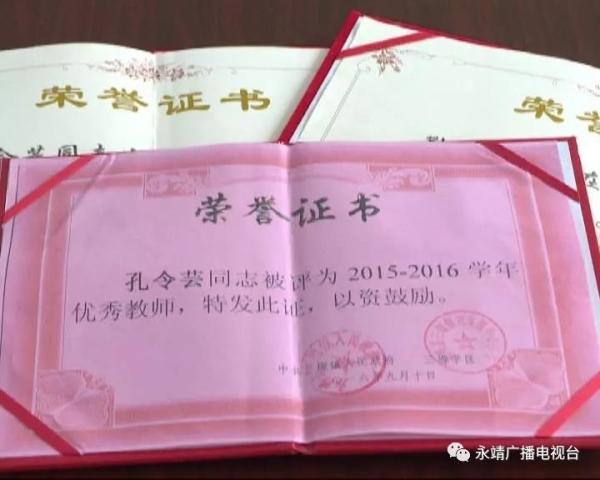 荣誉证书
荣誉
荣誉证书
孔令芸同志被评为 2015-2016 学年
优秀教师，特发此证，以资鼓励。
三塬学区
六年九月十日
永靖广播电视台